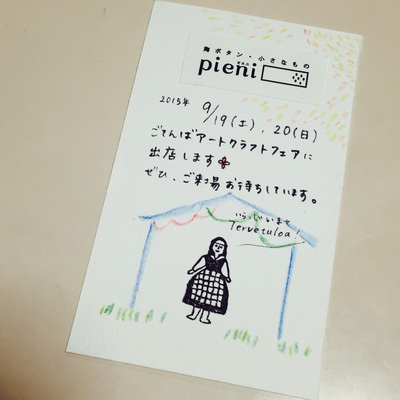 陶ボタン・小さなもの
pieni
2015年 9/19(土), 20(日)
ごてんばアートクラフトフェアに
出店します
ぜひ、ご来場お待ちしています。
いらっしゃいませ
Tervetuloa!